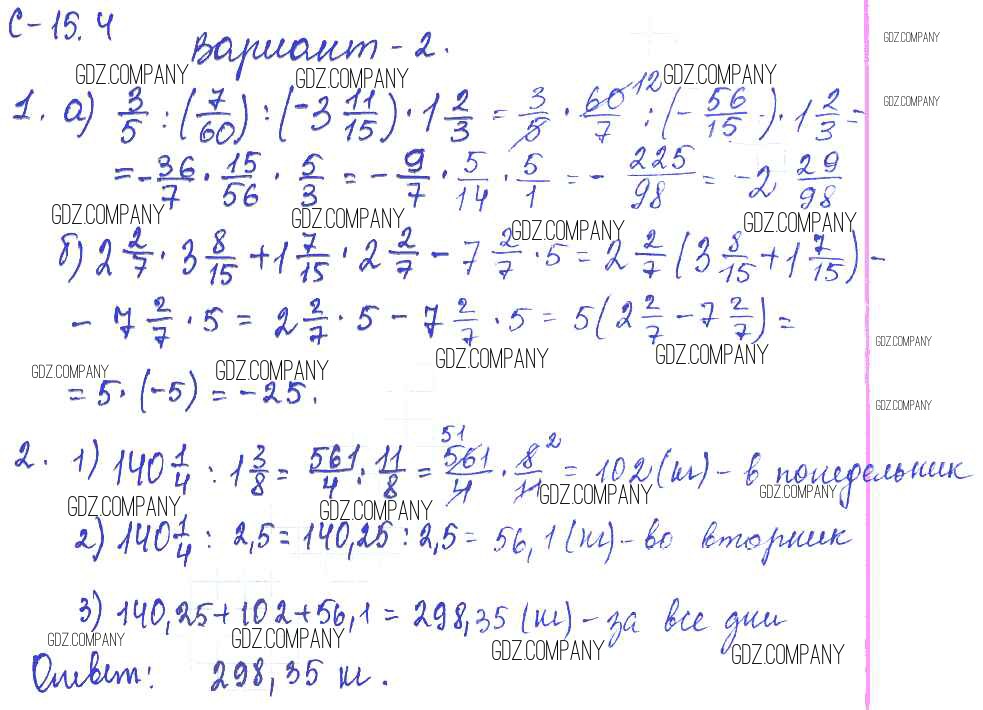 С-15.4
Вариант-2.
GDZ.COMPANY GDZ.COMPANY GDZ.COMPANY GDZ.COMPANY
1. а) 3/5 : (7/60) : (-3 11/15) · 1 2/3 = 3/5 · 60/7 12 : (- 56/15) · 1 2/3 = GDZ.COMPANY
= - 36/7 · 15/56 · 5/3 = - 9/7 · 5/14 · 5/1 = - 225/98 = -2 29/98
GDZ.COMPANY GDZ.COMPANY GDZ.COMPANY GDZ.COMPANY
б) 2 2/7 · 3 8/15 + 1 7/15 · 2 2/7 - 7 2/7 · 5 = 2 2/7 (3 8/15 + 1 7/15) -
- 7 2/7 · 5 = 2 2/7 · 5 - 7 2/7 · 5 = 5(2 2/7 - 7 2/7) =
GDZ.COMPANY GDZ.COMPANY GDZ.COMPANY GDZ.COMPANY GDZ.COMPANY
= 5 · (-5) = -25. GDZ.COMPANY
2. 1) 140 1/4 : 1 3/8 = 561/4 : 11/8 = 51 561/4 · 8/11 2 = 102 (кг) - в понедельник
GDZ.COMPANY GDZ.COMPANY GDZ.COMPANY GDZ.COMPANY
2) 140 1/4 : 2,5 = 140,25 : 2,5 = 56,1 (кг) - во вторник
3) 140,25 + 102 + 56,1 = 298,35 (кг) - за все дни
GDZ.COMPANY GDZ.COMPANY GDZ.COMPANY GDZ.COMPANY
Ответ: 298,35 кг.